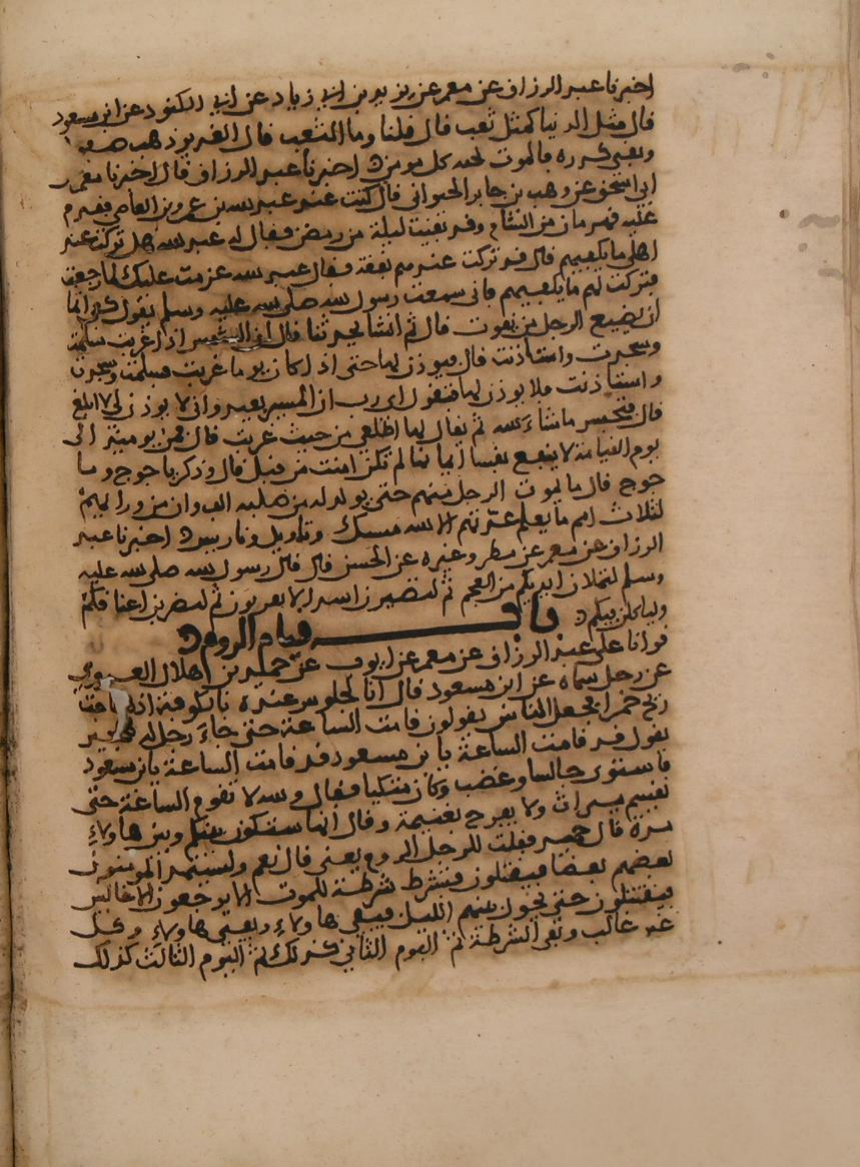 اخبرنا عبد الرزاق عن معمر عن يزيد بن ابي زياد عن ابي الكنود عن ابن مسعود
قال مثل الدنيا كمثل ثعب قال قلنا وما الثعب قال الغدير ذهب صفوه
وبقي كدره فالموت تحفة كل مومن اخبرنا عبد الرزاق قال اخبرنا معمر
ابي اسحق عن وهب بن جابر الخيواني قال كنت عند عبد الله بن عمرو بن العاص فقدم
عليه قهرمان من الشام وقد بقيت ليلة من رمضن فقال له عبد الله هل تركت عند
اهلي ما يكفيهم قال قد تركت عندهم نفقة فقال عبد الله عزمت عليك لما رجعت
فتركت لهم ما يكفيهم فاني سمعت رسول الله صلى الله عليه وسلم يقول كفى اثما
ان يضيع الرجل من يقوت قال ثم انشا يحدثنا قال ان الشمس اذا غربت سلمت
وسجدت واستاذنت قال فيوذن لها حتى اذا كان يوما غربت فسلمت وسجدت
واستاذنت فلا يوذن لها فتقول اي رب ان المسير بعيد واني لا يوذن لي لا ابلغ
قال فتحبس ما شاء الله ثم يقال لها اطلعي من حيث غربت قال فمن يوميذ الى
يوم القيامة لا ينفع نفسا ايمانها لم تكن امنت من قبل قال وذكر ياجوج وما
جوج قال ما يموت الرجل منهم حتى يولد له من صلبه الف وان من ورايهم
لثلاث امم ما يعلم عدتهم الا الله منسك وتاويل وتاريس اخبرنا عبد
الرزاق عن معمر عن مطر وغيره عن الحسن قال قال رسول الله صلى الله عليه
وسلم لتملان ايديكم من العجم ثم لتصيرن اسدا لا يفرون ثم ليضربن اعناقكم
ولياكلن فيكم
باب قيام الروم
قرانا على عبد الرزاق عن معمر عن ايوب عن حميد بن هلال العدوي
عن رجل سماه عن ابن مسعود قال انا لجلوس عنده بالكوفة اذ هاجت
ريح حمرا فجعل الناس يقولون قامت الساعة حتى جاء رجل له هجير
يقول قد قامت الساعة يا بن مسعود قد قامت الساعة يا بن مسعود
فاستوى جالسا وغضب وكان متكيا فقال والله لا تقوم الساعة حتى
تقسم ميراث ولا يفرح بغنيمة وقال انها ستكون بينكم وبين هاولاء
ردة قال حميد فقلت للرجل الروم يعني قال نعم وليستمد المومنون
بعضهم بعضا فيقتتلون فيشترط شرطة للموت الا يرجعون الا غالبين
فيقتتلون حتى يحول بينهم الليل فيبقى هاولاء ويبقى هاولاء وكل
غير غالب وتفنى الشرطة ثم اليوم الثاني كذلك ثم اليوم الثالث كذلك